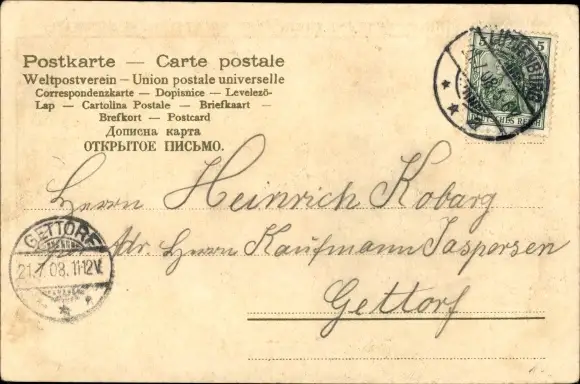 Postkarte — Carte postale
Weltpostverein — Union postale universelle
Correspondenzkarte — Dopisnice — Levelező-
Lap — Cartolina Postale — Briefkaart —
Brefkort — Postcard
Дописна карта
ОТКРЫТОЕ ПИСЬМО.
5 5
DEUTSCHES REICH
Herrn Heinrich Kobarg
Adr. Herrn Kaufmann Jaspersen
Gettorf
GETTORF
21.7.08. 11-12V.